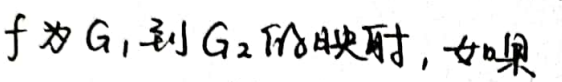 f为G₁到G₂的映射,如果